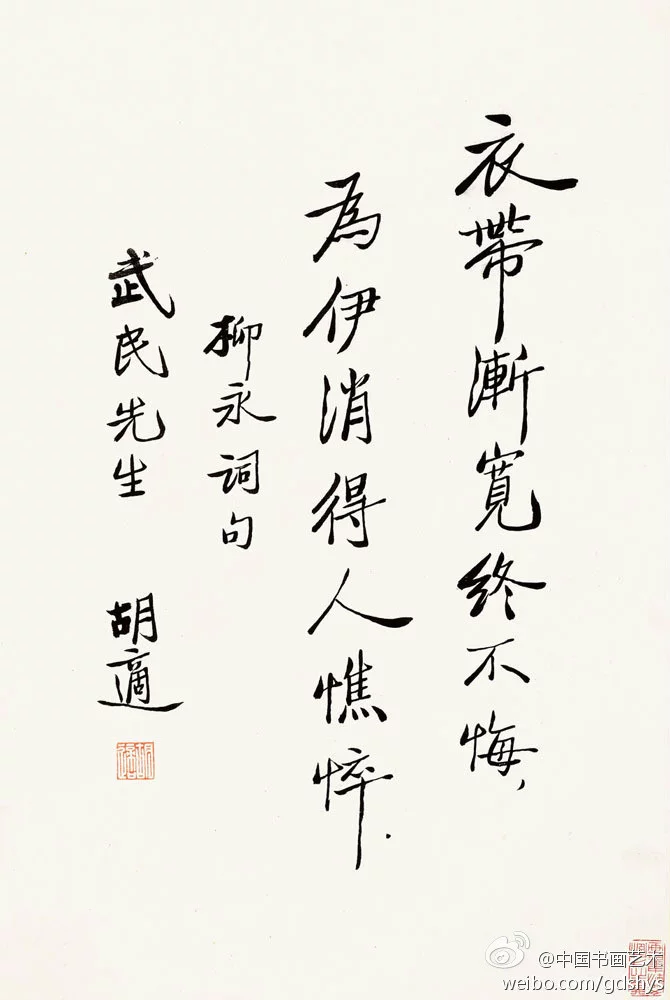 衣帶漸寬終不悔，
為伊消得人憔悴．
柳永詞句
武民先生 胡適
胡適
@中国书画艺术
weibo.com/gdshys